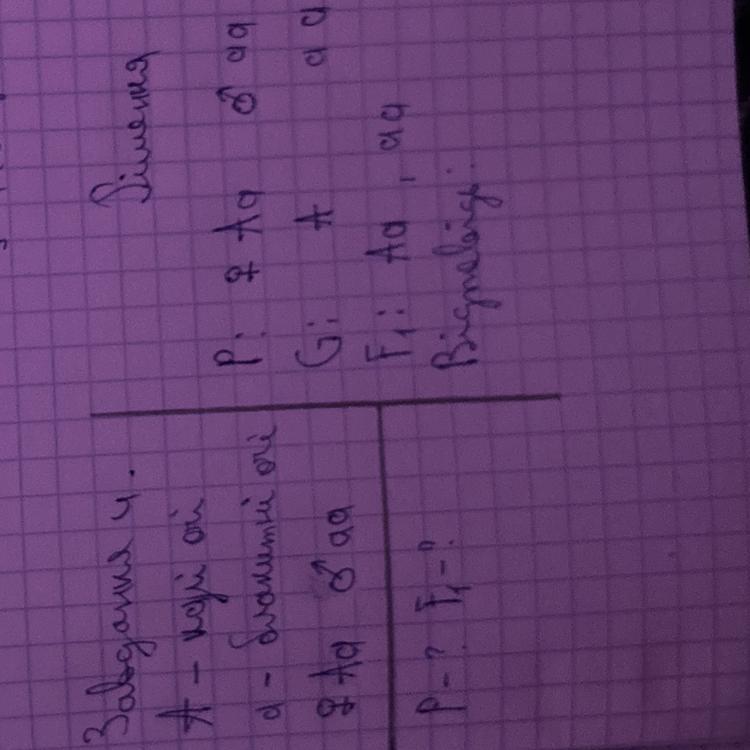 Завдання 4.
А - карі очі
а - блакитні очі
♀ Аа ♂ аа
Р - ? F₁ - ?
Рішення
Р: ♀ Аа ♂ аа
G: А а а
F₁: Аа, аа
Відповідь: